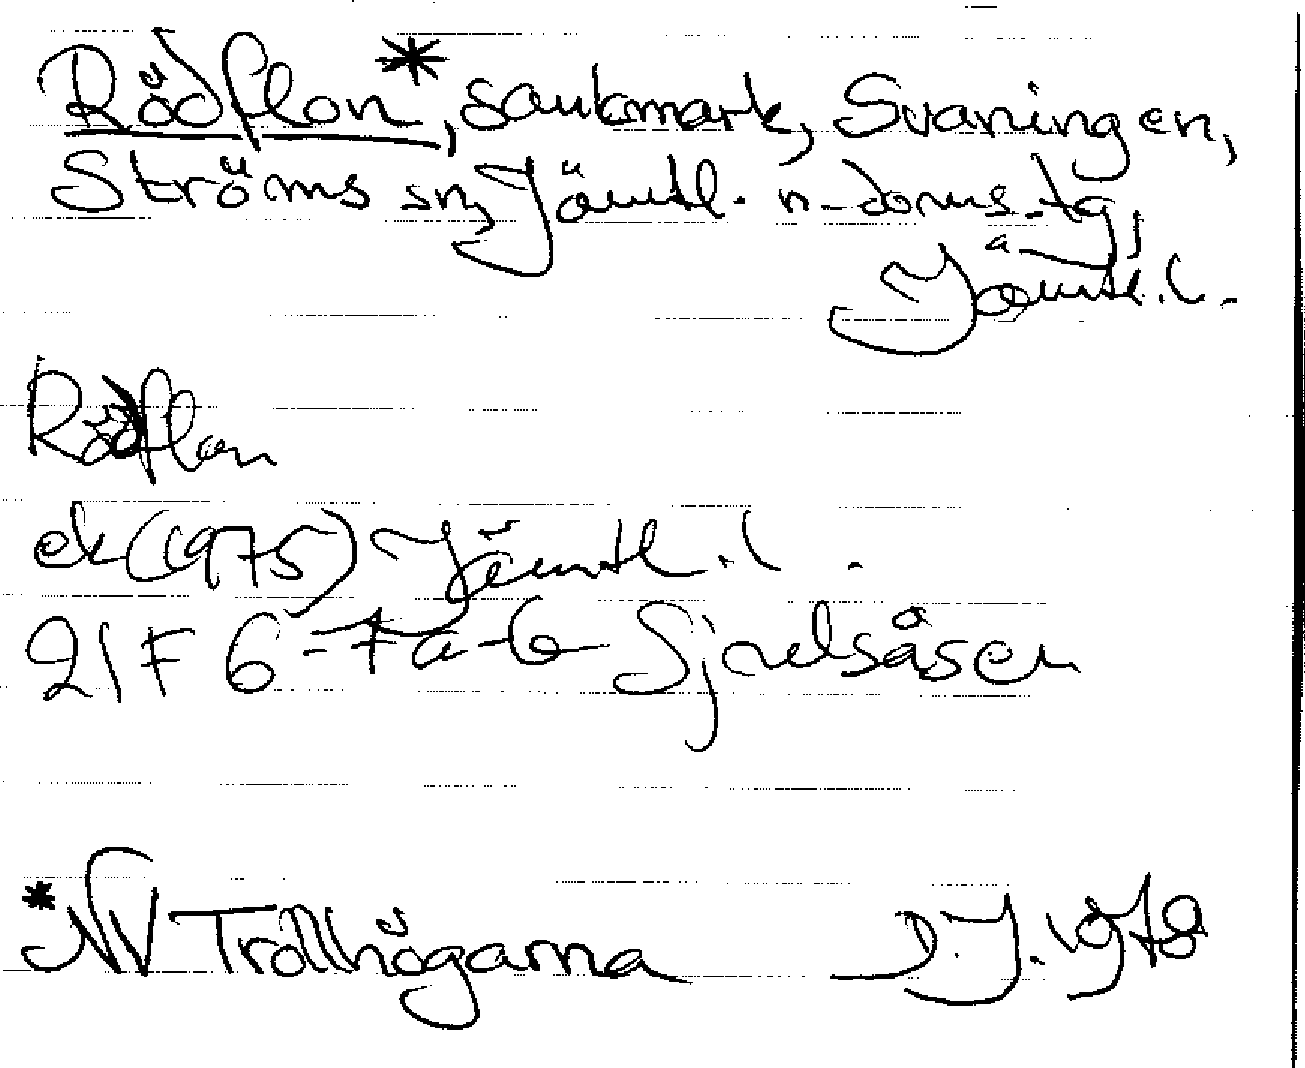 Rödflon*, sankmark, Svaningen,
Ströms sn, Jämtl. n-doms-tg,
Jämtl. l.
Rödflon
ek (1975) Jämtl. l.
21F 6-7a-b Sjoulsåsen
*NV Trollhögarna D.J. 1978